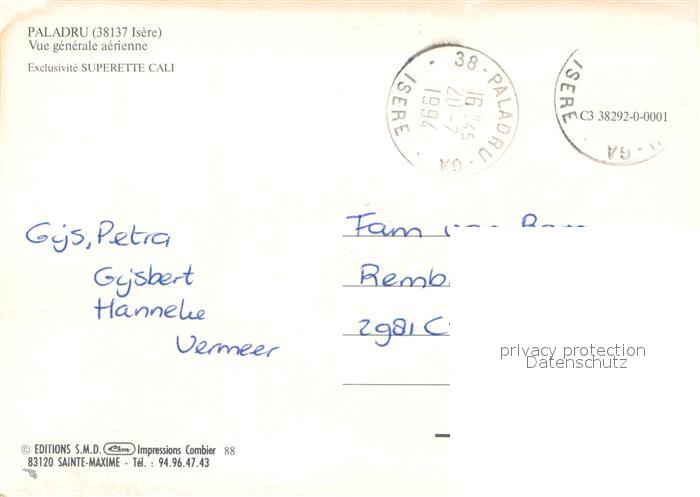 PALADRU (38137 Isère)
Vue générale aérienne
Exclusivité SUPERETTE CALI
38-PALADRU-GA
ISERE
16 H 45
20-7
1994
ISERE
GA
C3 38292-0-0001
Gijs, Petra
Gijsbert
Hanneke
Vermeer
Fam
Remb
2981 C
privacy protection
Datenschutz
© EDITIONS S.M.D. Cim Impressions Combier 88
83120 SAINTE-MAXIME - Tél. : 94.96.47.43